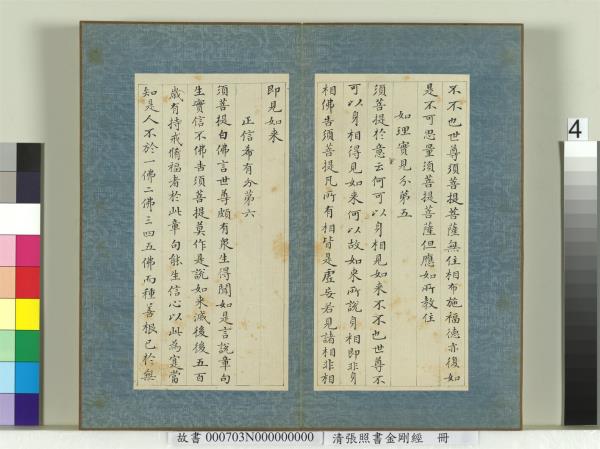 不不也世尊須菩提菩薩無住相布施福德亦復如
是不可思量須菩提菩薩但應如所教住
如理實見分第五
須菩提於意云何可以身相見如來不不也世尊不
可以身相得見如來何以故如來所說身相即非身
相佛告須菩提凡所有相皆是虛妄若見諸相非相
即見如來
正信希有分第六
須菩提白佛言世尊頗有衆生得聞如是言說章句
生實信不佛告須菩提莫作是說如來滅後後五百
歲有持戒脩福者於此章句能生信心以此為實當
知是人不於一佛二佛三四五佛而種善根已於無
4
故書 000703N000000000 清張照書金剛經 冊